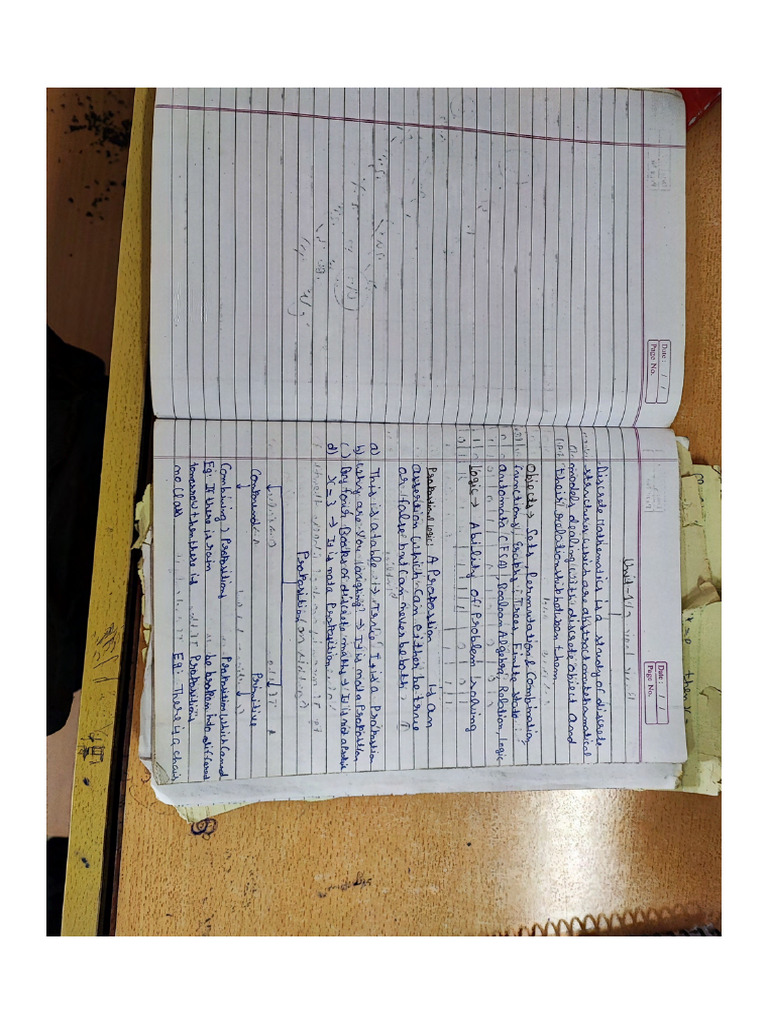 Date: / /
Page No.
Date: / /
Page No.
Unit-1
Discrete Mathematics is a study of discrete
structures which are abstract mathematical
models dealing with discrete object and
their relationship between them.
Objects → Sets, Permutational Combination,
functions, Graphs, Trees, Finite State
automata (CFA), Boolean Algebra, Relation, Logic
Logic → Ability of Problem solving
Propositional logic: A Proposition is an
assertion which can either be true
or false but can never be both.
a) This is a table → It is a Proposition
b) Why are you laughing? → It is not a Proposition
c) Buy four Books of discrete maths → It is not a
d) x = 3 → It is not a Proposition
Proposition
Compound
Primitive
Combining 2 Propositions
Proposition which cannot
be broken into different
Propositions
Eg: If there is rain
tomorrow then there is
no class
Eg: There is a chair